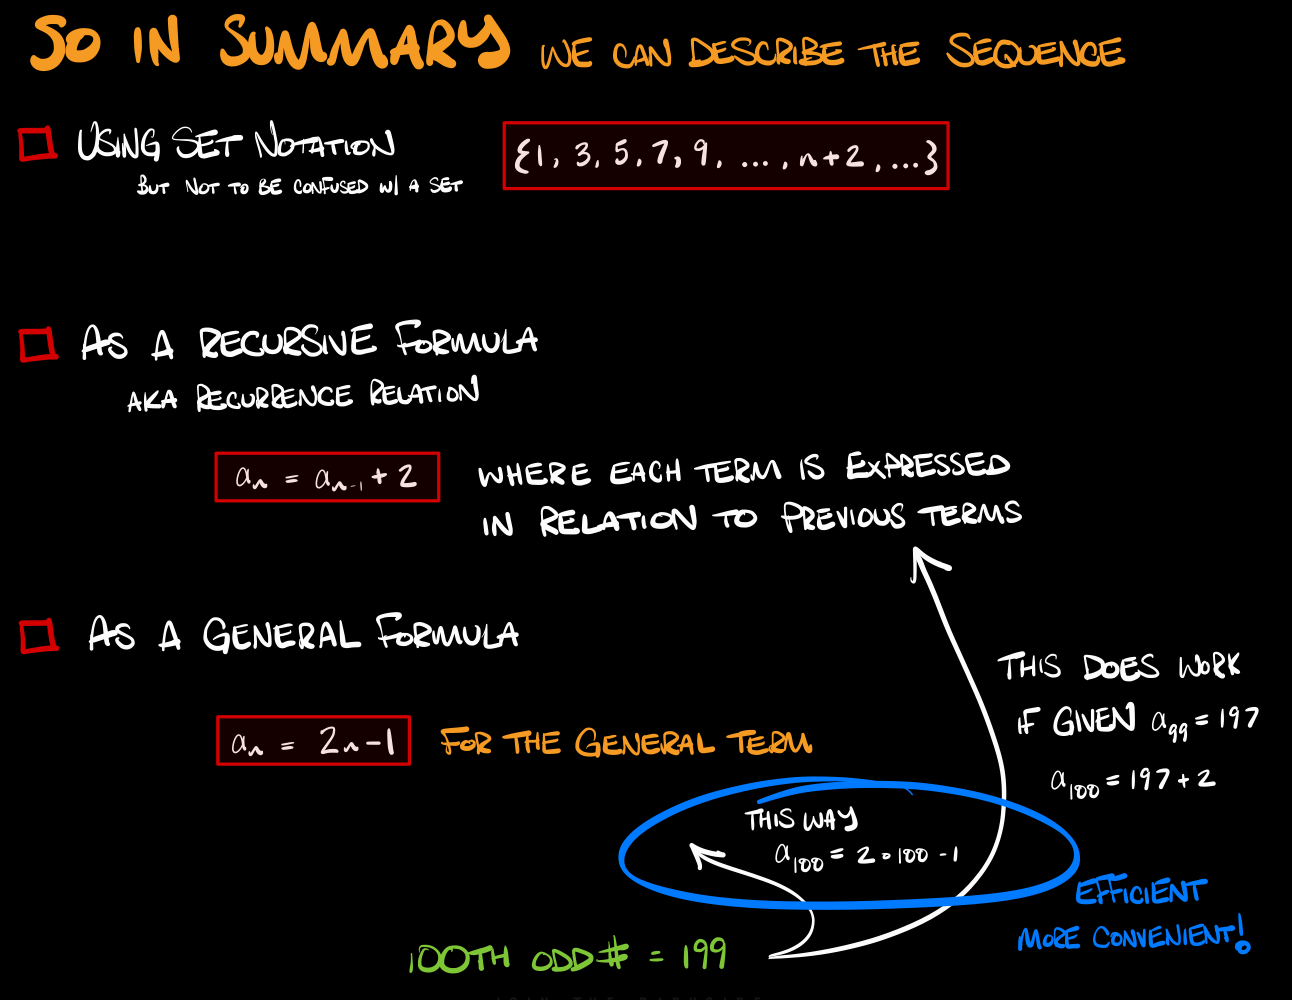 SO IN SUMMARY WE CAN DESCRIBE THE SEQUENCE
USING SET NOTATION
BUT NOT TO BE CONFUSED W/ A SET
{1, 3, 5, 7, 9, ..., n+2, ...}
AS A RECURSIVE FORMULA
AKA RECURRENCE RELATION
aₙ = aₙ₋₁ + 2
WHERE EACH TERM IS EXPRESSED
IN RELATION TO PREVIOUS TERMS
AS A GENERAL FORMULA
aₙ = 2n-1 FOR THE GENERAL TERM
THIS DOES WORK
IF GIVEN a₉₉ = 197
a₁₀₀ = 197 + 2
THIS WAY
a₁₀₀ = 2 • 100 - 1
EFFICIENT
MORE CONVENIENT!
100TH ODD # = 199